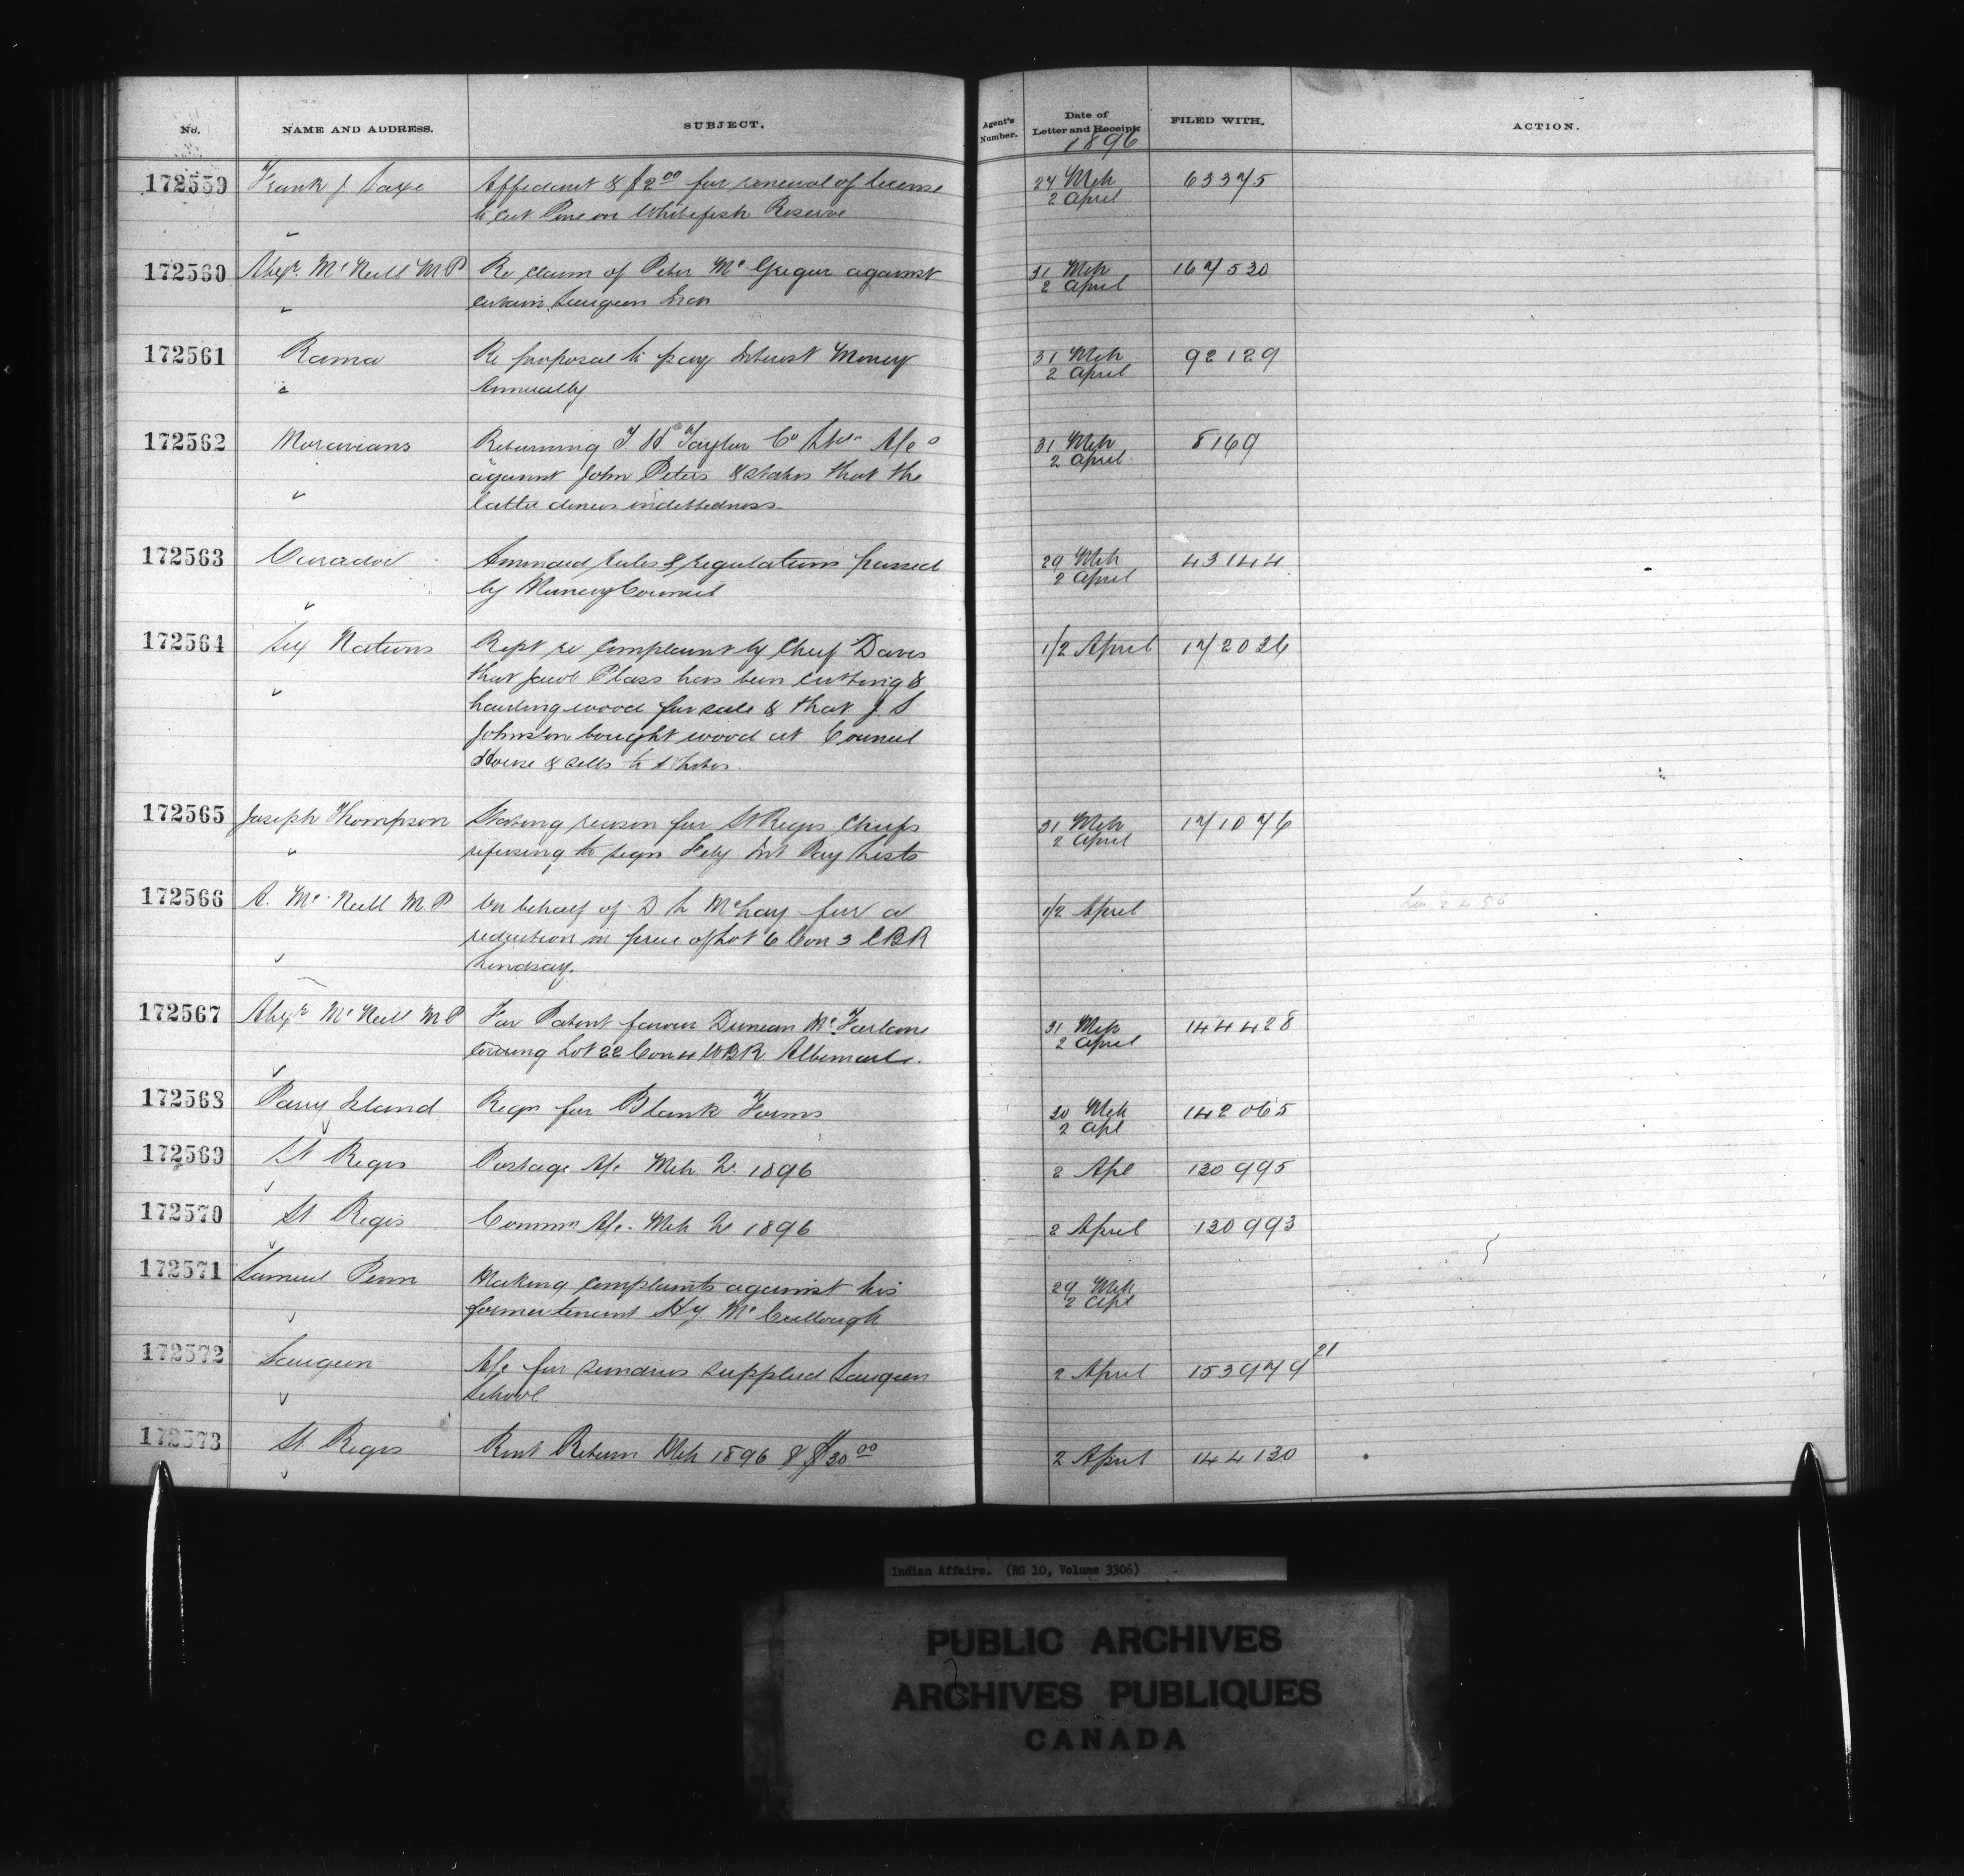 No. NAME AND ADDRESS. SUBJECT. Agent's Number. Date of Letter and Receipt. FILED WITH. ACTION.
1896
172559 Frank J. Saxe Affidavit & $2.00 for renewal of license 24 Mch 63375
to cut Pine on Whitefish Reserve 2 April
172560 Alexr. McNeill M P Re claim of Peter McGregor against 31 Mch 167530
certain Saugeen Inds 2 April
172561 Rama Re proposal to pay Interest Money 31 Mch 92129
Annually 2 April
172562 Moravians Returning T. H. Taylor Co A/c 31 Mch 8169
against John Peters & states that the 2 April
latter denies indebtedness
172563 Caradoc Ammended rules & regulations passed 29 Mch 43144
by Muncey Council 2 April
172564 Six Nations Rept re complaint by Chief Davis 1/2 April 172026
that Jacob Plass has been cutting &
hauling wood for sale & that J. S
Johnston bought wood at Council
House & sells to Whites
172565 Joseph Thompson Stating reason for St Regis Chiefs 31 Mch 171076
refusing to sign Feby Int Pay Lists 2 April
172566 A. McNeill M.P On behalf of D L McLay for a 1/2 April
reduction in price of Lot 6 Con 3 EBR
Lindsay.
172567 Alexr McNeill M P For Patent favour Duncan McFarlane 31 Mch 144428
covering Lot 22 Con 4 WBR Albemarle. 2 April
172568 Parry Island Reqn for Blank Forms 30 Mch 142065
2 Apl
172569 St Regis Postage A/c Mch Qr. 1896 2 Apl 130995
172570 St. Regis Commn A/c. Mch Qr 1896 2 April 130993
172571 Samuel Penn Making complaints against his 29 Mch
former tenant Hy. McCullough 2 Apl
172572 Saugeen A/c for sundries supplied Saugeen 2 April 153979 21
School
172573 St. Regis Rent Return Mch 1896 & $30.00 2 April 144130
Indian Affairs. (RG 10, Volume 3306)
PUBLIC ARCHIVES
ARCHIVES PUBLIQUES
CANADA